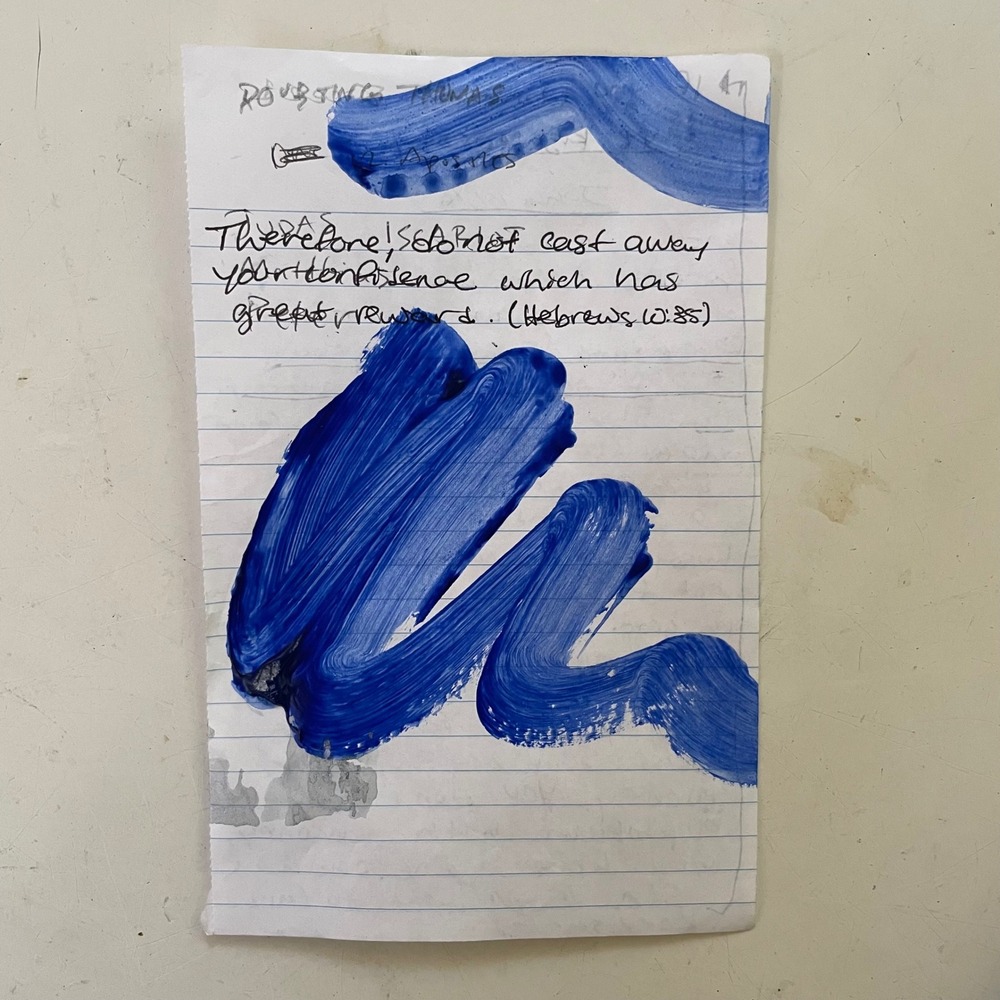 DOUBTING THOMAS
12 Apostles
JUDAS ISCARIOT
Therefore, do not cast away
your confidence which has
great reward. (Hebrews 10:35)
Peter